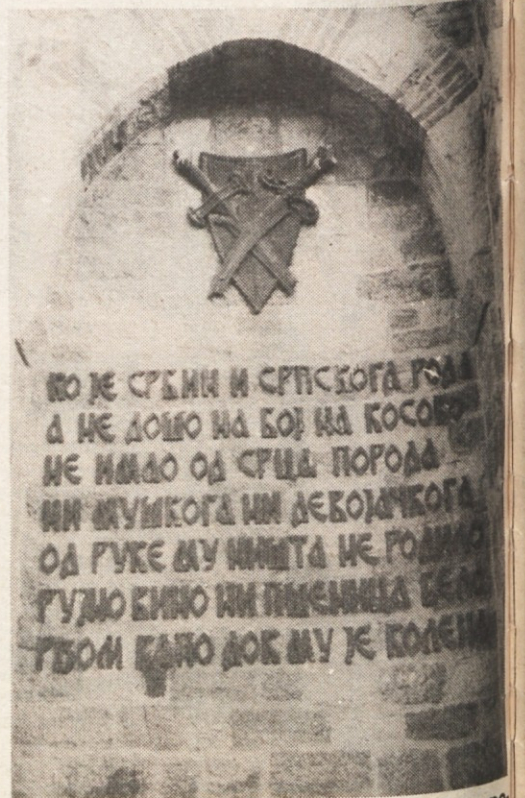 КО ЈЕ СРБИН И СРПСКОГА РОДА
А НЕ ДОШО НА БОЈ НА КОСОВО
НЕ ИМАО ОД СРЦА ПОРОДА
НИ МУШКОГА НИ ДЕВОЈАЧКОГА
ОД РУКЕ МУ НИШТА НЕ РОДИЛО
РУЈНО ВИНО НИ ПШЕНИЦА БЕЛА
РЂОМ КАПО ДОК МУ ЈЕ КОЛЕНА